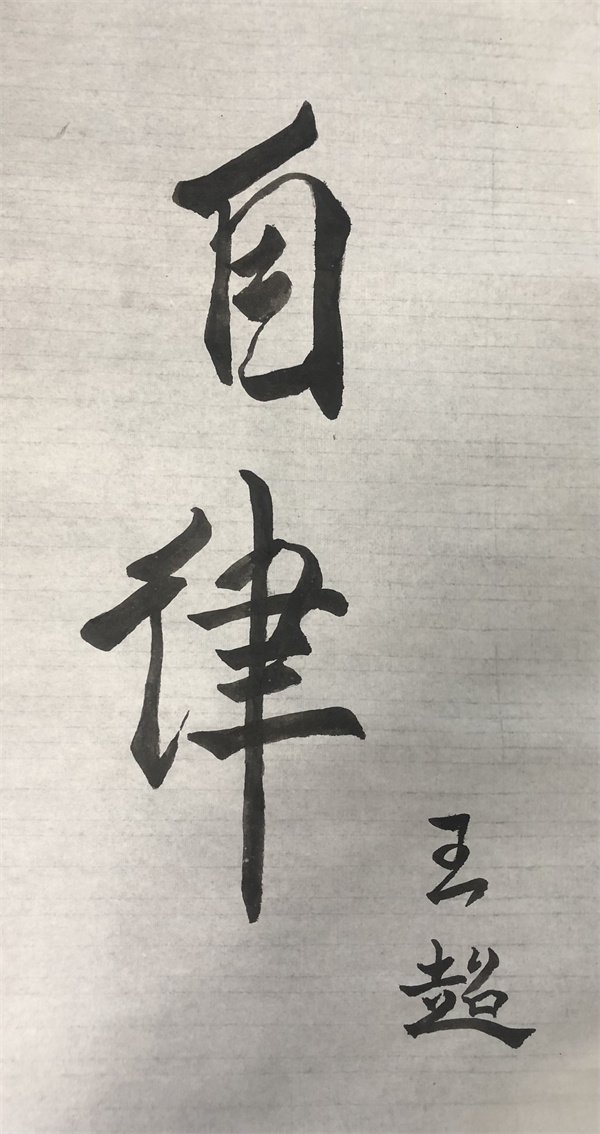 自律
王超